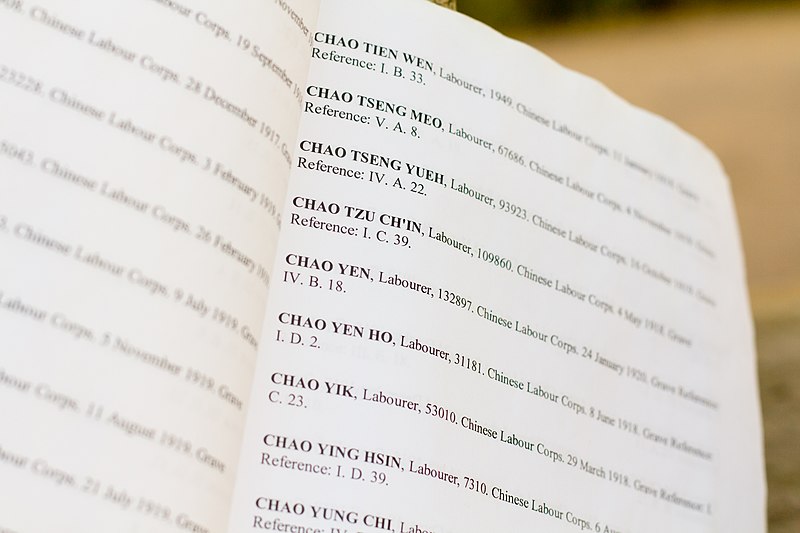 November
Chinese Labour Corps. 19 September
Chinese Labour Corps. 28 December 1917.
23228. Chinese Labour Corps. 3 February 1919.
Chinese Labour Corps. 26 February
Chinese Labour Corps. 9 July 1919. Grave
Labour Corps. 5 November 1919. Grave
Corps. 11 August 1919. Grave
Corps. 21 July 1919. Grave
CHAO TIEN WEN, Labourer, 1949. Chinese Labour Corps. January
Reference: I. B. 33.
CHAO TSENG MEO, Labourer, 67686. Chinese Labour Corps. 4 November
Reference: V. A. 8.
CHAO TSENG YUEH, Labourer, 93923. Chinese Labour Corps. 16 October
Reference: IV. A. 22.
CHAO TZU CH'IN, Labourer, 109860. Chinese Labour Corps. 4 May 1918. Grave
Reference: I. C. 39.
CHAO YEN, Labourer, 132897. Chinese Labour Corps. 24 January 1920. Grave Reference:
IV. B. 18.
CHAO YEN HO, Labourer, 31181. Chinese Labour Corps. 8 June 1918. Grave Reference:
I. D. 2.
CHAO YIK, Labourer, 53010. Chinese Labour Corps. 29 March 1918. Grave Reference: I.
C. 23.
CHAO YING HSIN, Labourer, 7310. Chinese Labour Corps. 6
Reference: I. D. 39.
CHAO YUNG CHI,
Reference: